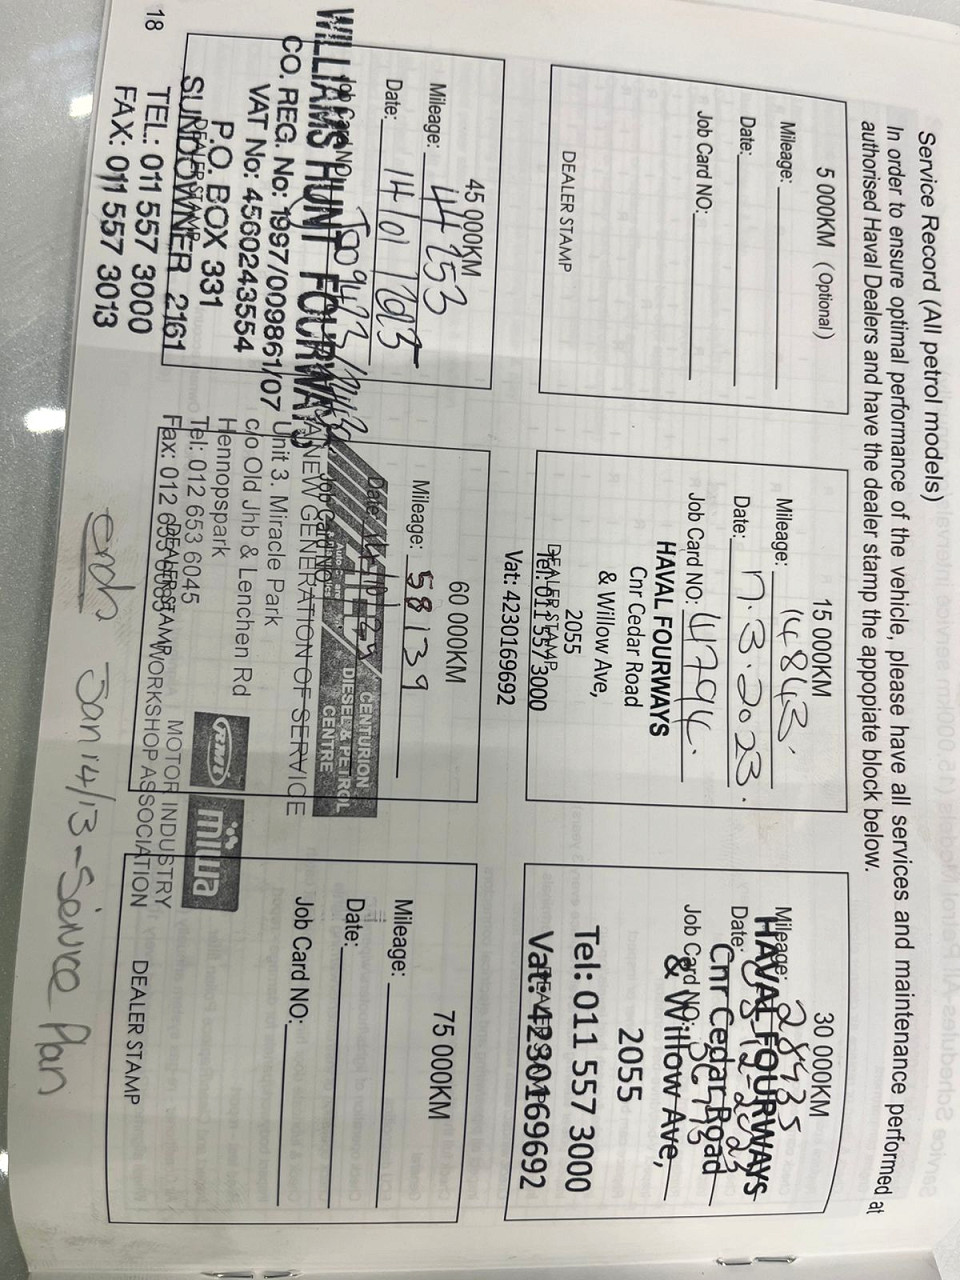 Service Record (All petrol models)
In order to ensure optimal performance of the vehicle, please have all services and maintenance performed at
authorised Haval Dealers and have the dealer stamp the appopiate block below.
5 000KM (Optional)
Mileage:
Date:
Job Card NO:
DEALER STAMP
15 000KM
Mileage: 14843.
Date: 17.3.2023.
Job Card NO: 47994.
HAVAL FOURWAYS
Cnr Cedar Road
& Willow Ave,
2055
DEALER STAMP
Tel: 011 557 3000
Vat: 4230169692
30 000KM
Mileage: 28935
Date:
Job Card NO:
HAVAL FOURWAYS
Cnr Cedar Road
& Willow Ave,
2055
Tel: 011 557 3000
DEALER STAMP
Vat: 4230169692
45 000KM
Mileage: 44253
Date:
Job Card NO:
WILLIAMS HUNT FOURWAYS
CO. REG. No: 1997/009861/07
VAT No: 4560243554
P.O. BOX 331
DEALER STAMP
SUNDOWNER 2161
TEL: 011 557 3000
FAX: 011 557 3013
60 000KM
Mileage: 58139
Date:
Job Card NO:
CENTURION
DIESEL & PETROL
CENTRE
A NEW GENERATION OF SERVICE
Unit 3. Miracle Park
c/o Old Jhb & Lenchen Rd
Hennopspark
Tel: 012 653 6045
Fax: 012
DEALER STAMP
rmi
miwa
MOTOR INDUSTRY
WORKSHOP ASSOCIATION
75 000KM
Mileage:
Date:
Job Card NO:
DEALER STAMP
end Jan 14/13 - Service Plan
18